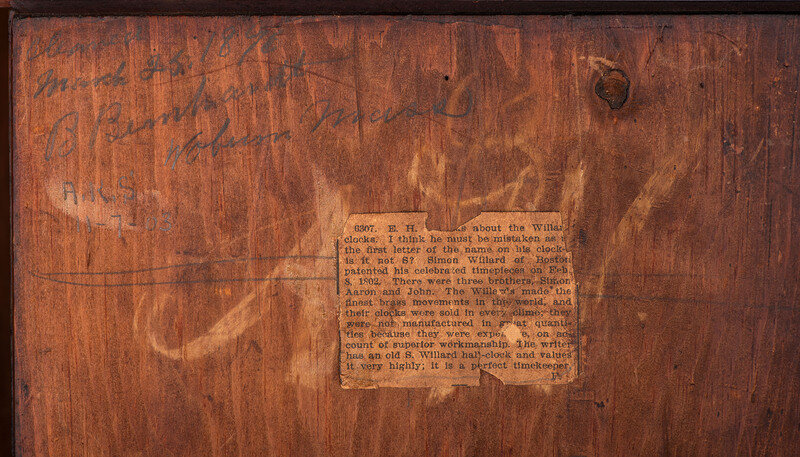 March 25, 18
B Bernhardt
Woburn Mass
11-7-03
6307. E. H. about the Willard
clocks. I think he must be mistaken as
the first letter of the name on his clock—
is it not S? Simon Willard of Boston
patented his celebrated timepieces on Feb.
8, 1802. There were three brothers, Simon
Aaron and John. The Willard's made the
finest brass movements in the world, and
their clocks were sold in every clime; they
were not manufactured in great quanti-
ties because they were on ac-
count of superior workmanship. The writer
has an old S. Willard hall-clock and values
it very highly; it is a perfect timekeeper.